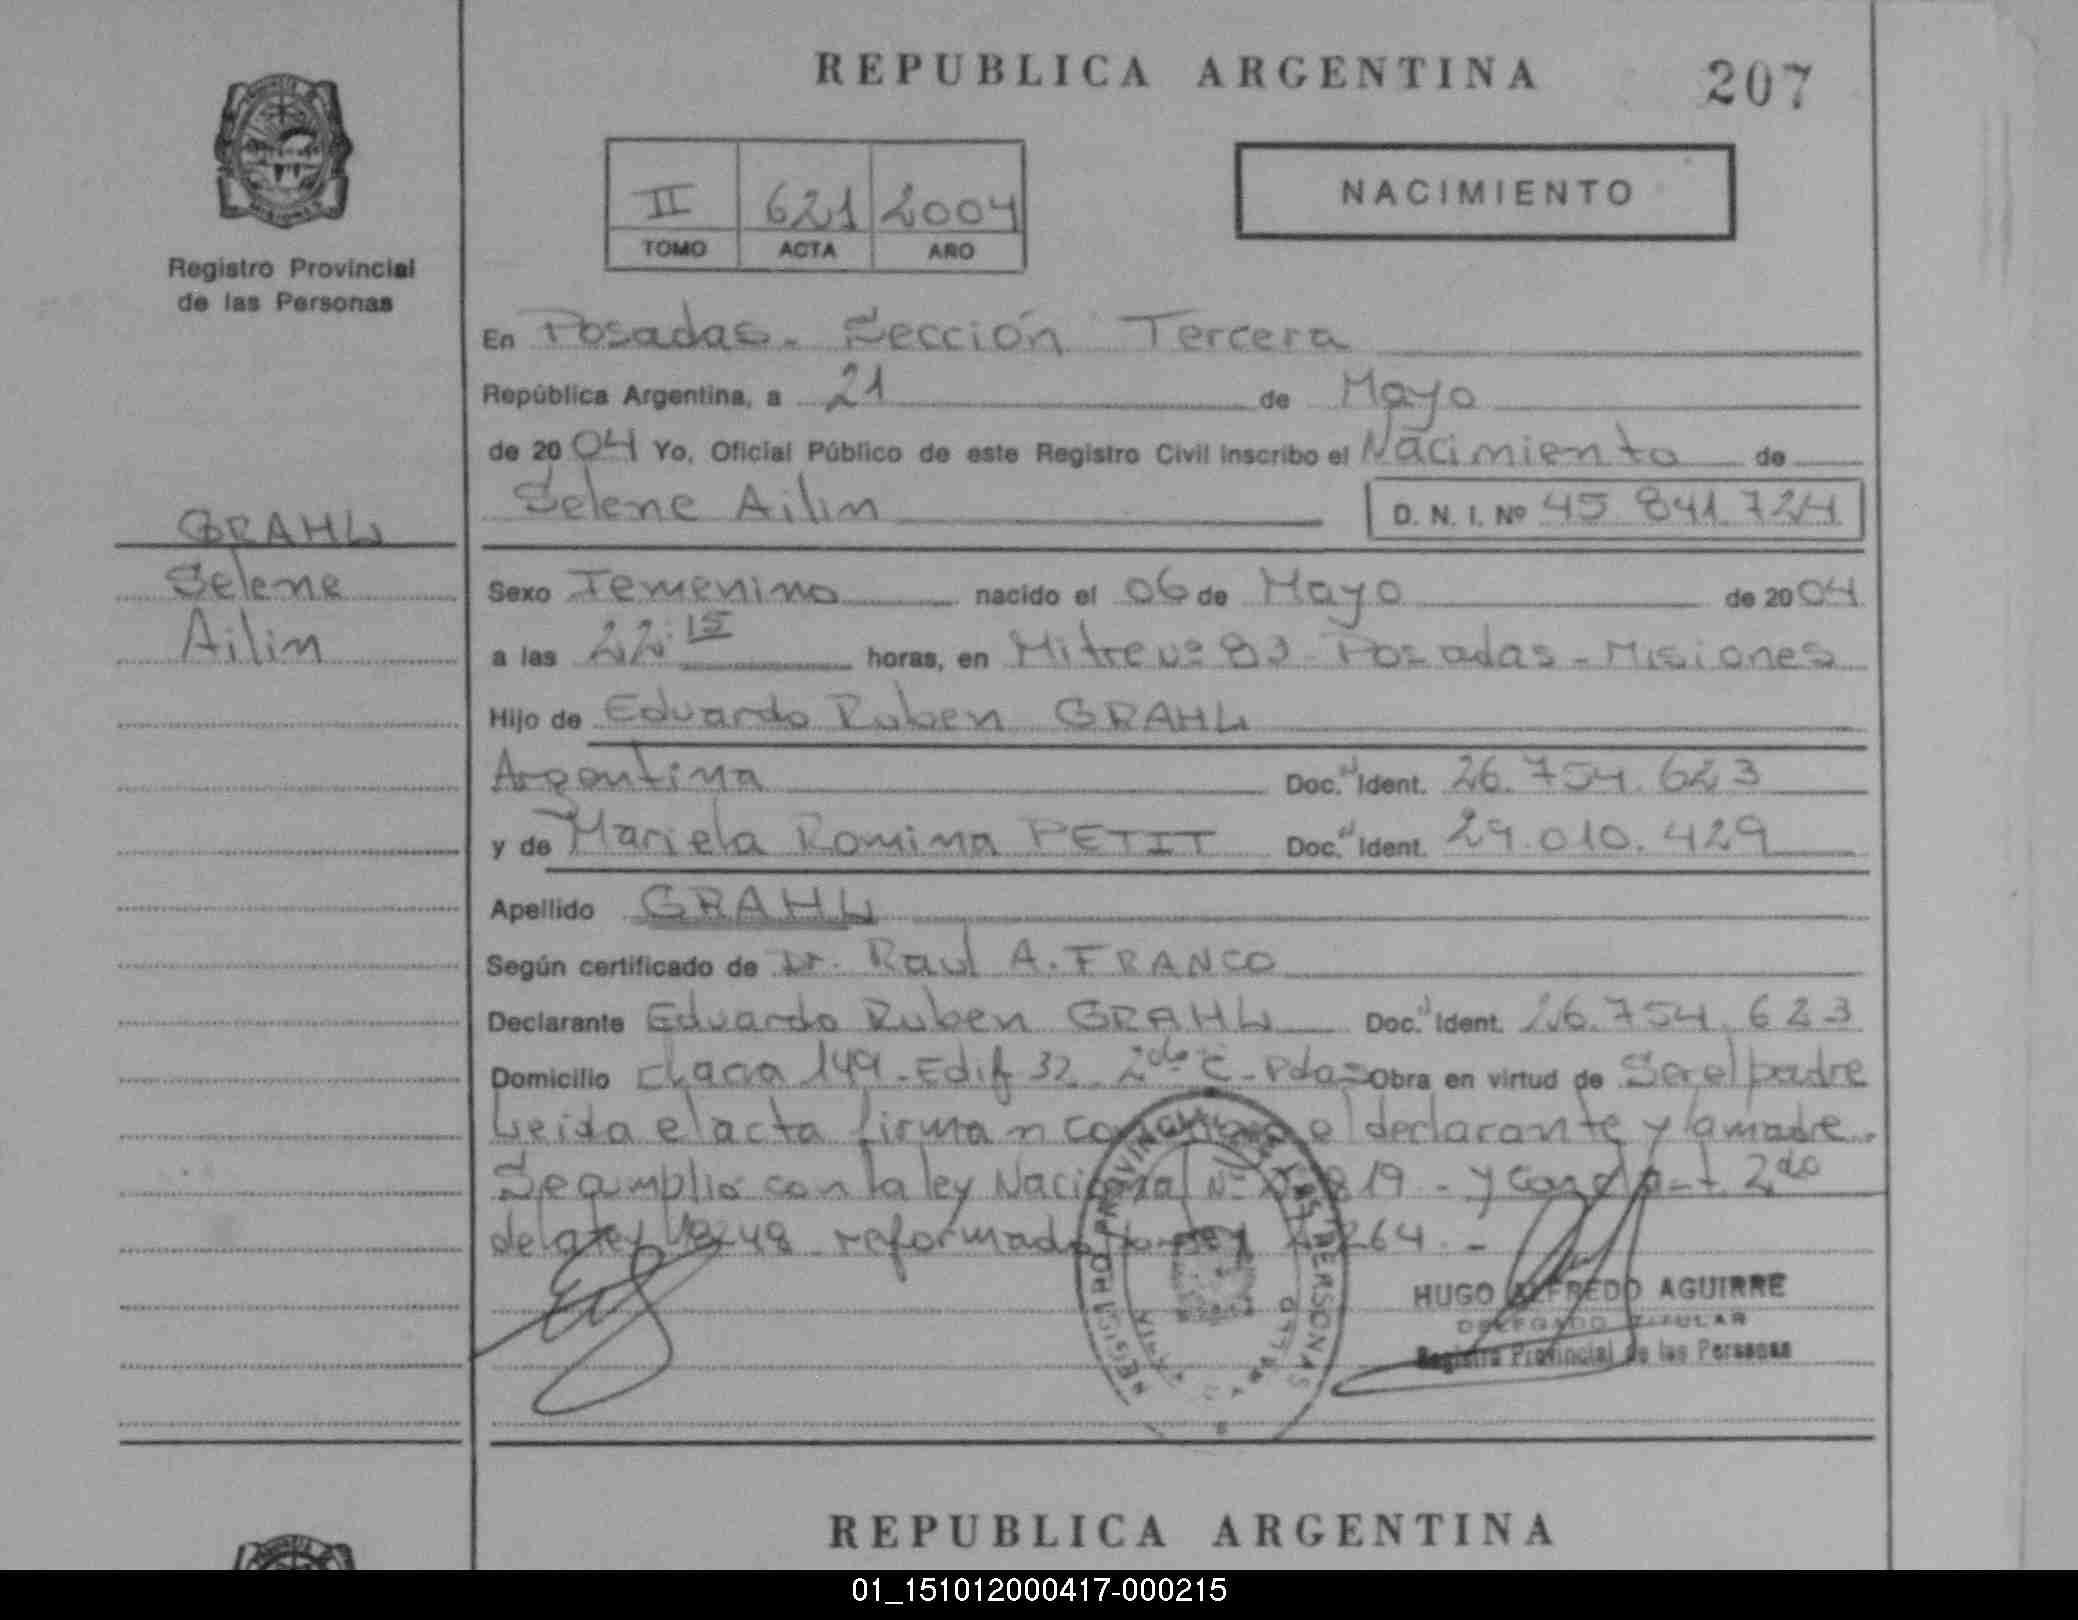 REPUBLICA ARGENTINA
207
II 621 2004
TOMO ACTA AÑO
NACIMIENTO
Registro Provincial
de las Personas
GRAHL
Selene
Ailin
En Posadas - Sección Tercera
República Argentina, a 21 de Mayo
de 2004 Yo, Oficial Público de este Registro Civil inscribo el Nacimiento de
Selene Ailin D. N. I. Nº 45 841 724
Sexo Femenino nacido el 06 de Mayo de 2004
a las 22:15 horas, en Mitre nº 83 Posadas - Misiones
Hijo de Eduardo Ruben GRAHL
Argentina Doc. Ident. 26.754.623
y de Mariela Romina PETIT Doc. Ident. 29.010.429
Apellido GRAHL
Según certificado de Dr. Raul A. FRANCO
Declarante Eduardo Ruben GRAHL Doc. Ident. 26.754.623
Domicilio chacra 149 - Edif 32 - 2do C - Pdas Obra en virtud de Ser el padre
Leida el acta firman el declarante y la madre.
Se cumplio con la ley Nacional Nº - y con el 2do
de la ley 18248 reformado ley 264 -
HUGO ALFREDO AGUIRRE
DELEGADO TITULAR
Registro Provincial de las Personas
REGISTRO PROVINCIAL DE LAS PERSONAS
REPUBLICA ARGENTINA
01_151012000417-000215